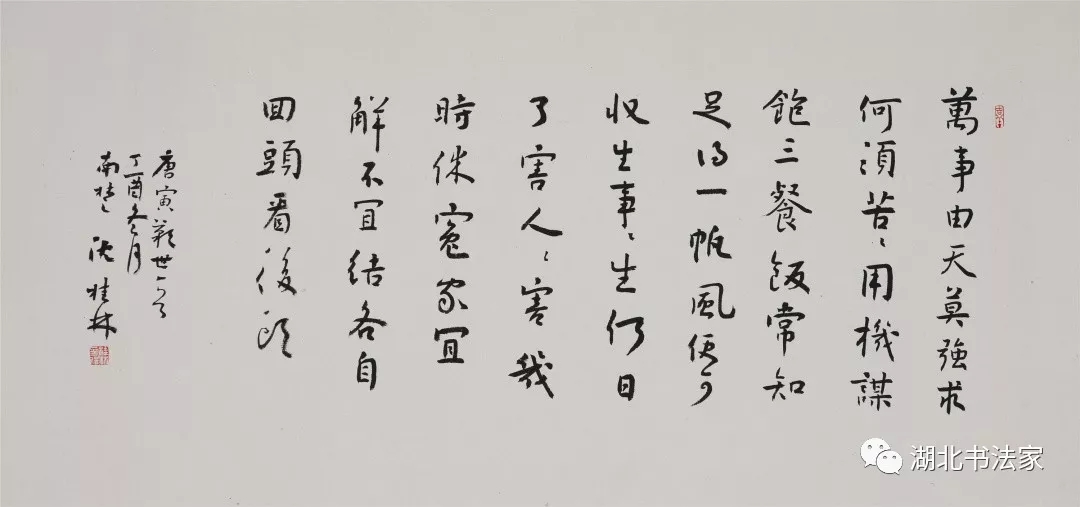 萬事由天莫強求
何須苦〻用機謀
飽三餐飯常知
足得一帆風便可
收生事〻生何日
了害人〻害我
時休冤家宜
解不宜結各自
回頭看後頭
唐寅歎世
丁酉冬月
南楚 沈桂林
湖北书法家